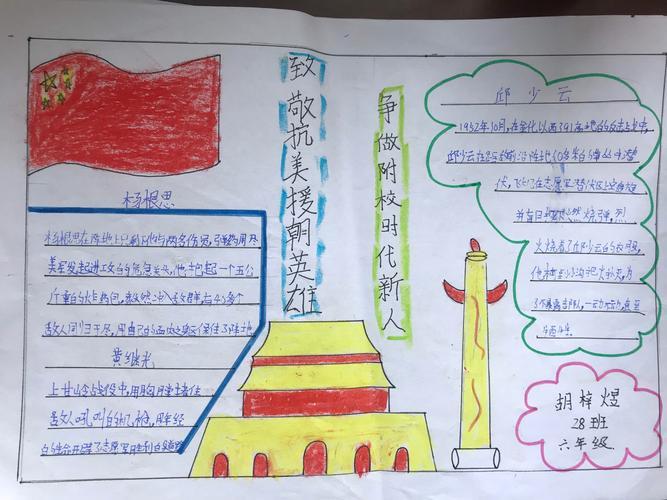 致敬抗美援朝英雄
争做附校时代新人
杨根思
杨根思在阵地上只剩他与两名伤员,弹药用尽
美军发起进攻的危急关头,他抱起一个五公
斤重的炸药包,毅然冲入敌群,与40多个
敌人同归于尽,用自己的血肉之躯保住了阵地
黄继光
上甘岭战役中,用胸膛堵住
敌人吼叫的机枪,用年轻
的生命开辟了志愿军胜利的道路
邱少云
1952年10月,在金化以西391高地的反击
邱少云在
伏,飞机在志愿军潜伏区
并盲目 燃烧弹,烈
火烧着了邱少云的
他
为
不暴露部队,一动不动,直至
牺牲
胡梓煜
28班
六年级